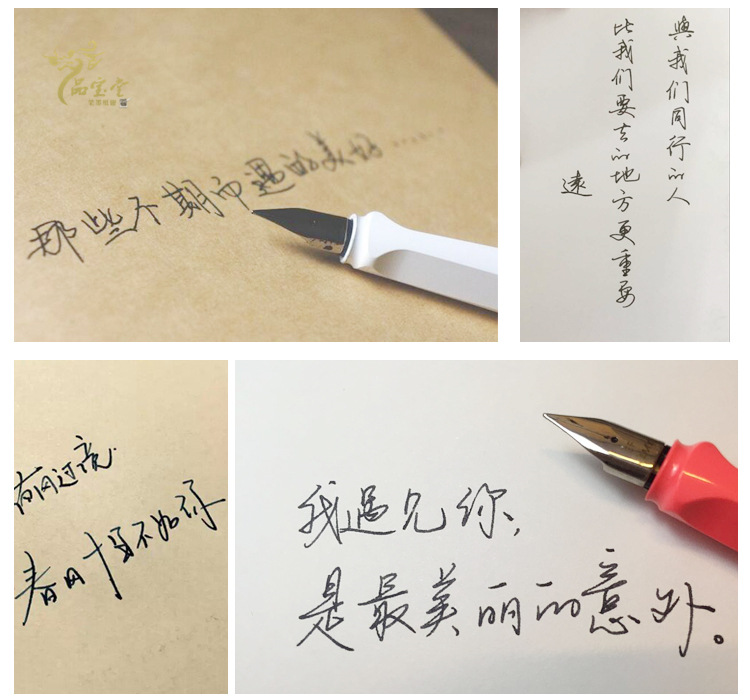 品宝堂
那些不期而遇的美好……
與我们同行的人
比我们要去的地方更重要
遠
春风十里不如你
我遇见你，
是最美丽的意外。